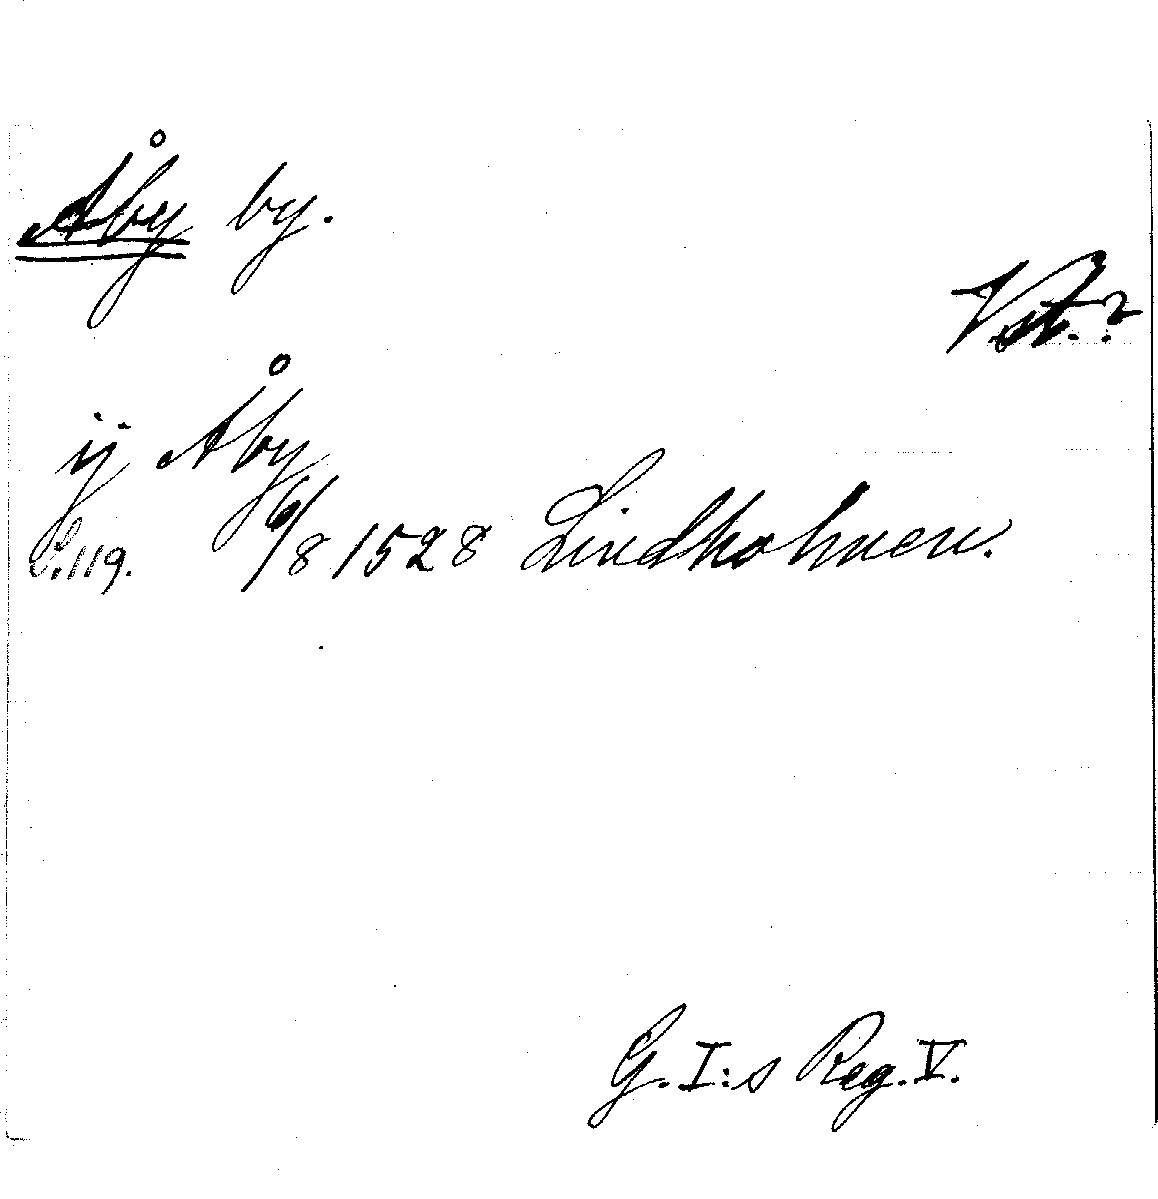 Åby by.
ij Åby
S. 119. 6/8 1528 Lindholmen.
G. I:s Reg. V.